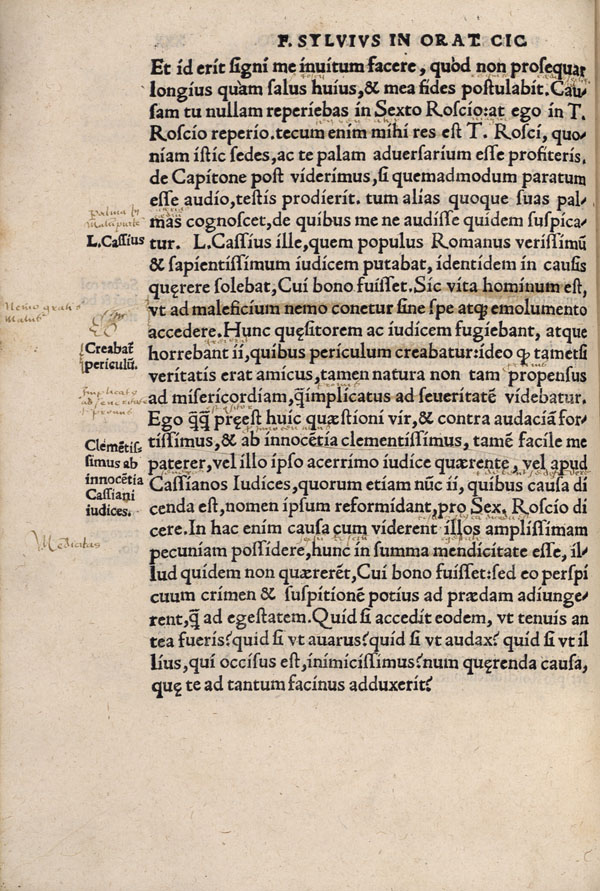 F. SYLVIVS IN ORAT. CIC
Et id erit signi me inuitum facere, quòd non prosequar
longius quàm salus huius, & mea fides postulabit. Cau-
sam tu nullam reperiebas in Sexto Roscio: at ego in T.
Roscio reperio. tecum enim mihi res est T. Rosci, quo-
niam istic sedes, ac te palam aduersarium esse profiteris,
de Capitone post viderimus, si quemadmodum paratum
esse audio, testis prodierit. tum alias quoque suas pal-
mas cognoscet, de quibus me ne audisse quidem suspica-
L. Cassius
tur. L. Cassius ille, quem populus Romanus verissimũ
& sapientissimum iudicem putabat, identidem in causis
quęrere solebat, Cui bono fuisset. Sic vita hominum est,
Nemo gratis
malus
vt ad maleficium nemo conetur sine spe atq; emolumento
accedere. Hunc quęsitorem ac iudicem fugiebant, atque
Creabat̃
periculũ.
horrebant ii, quibus periculum creabatur: ideo q; tametsi
veritatis erat amicus, tamen natura non tam propensus
ad misericordiam, q̃ implicatus ad seueritatẽ videbatur.
Ego q̃q̃ pręest huic quæstioni vir, & contra audaciã for-
Clemẽtis-
simus ab
innocẽtia
Cassiani
iudices.
tissimus, & ab innocẽtia clementissimus, tamẽ facile me
paterer, vel illo ipso acerrimo iudice quærente, vel apud
Cassianos Iudices, quorum etiam nũc ii, quibus causa di
cenda est, nomen ipsum reformidant, pro Sex. Roscio di
cere. In hac enim causa cum viderent illos amplissimam
pecuniam possidere, hunc in summa mendicitate esse, il-
lud quidem non quærerẽt, Cui bono fuisset: sed eo perspi
cuum crimen & suspitionẽ potius ad prædam adiunge-
rent, q̃ ad egestatem. Quid si accedit eodem, vt tenuis an
tea fueris? quid si vt auarus? quid si vt audax? quid si vt il
lius, qui occisus est, inimicissimus? num quęrenda causa,
quę te ad tantum facinus adduxerit?